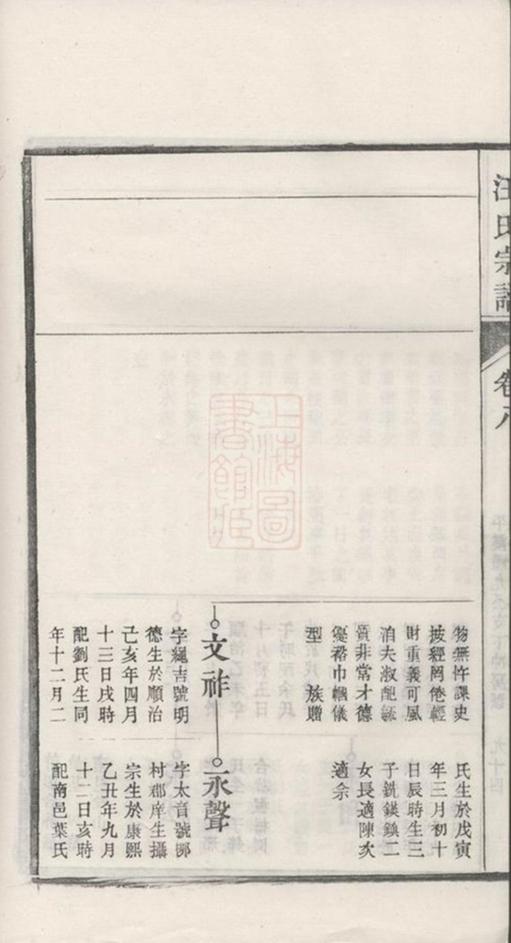 汪氏宗譜
卷八
物無忤課史
按經罔倦輕
財重義可風
洎夫淑配詠
質非常才德
邁裕巾幗儀
型　族贈
氏生於戊寅
年三月初十
日辰時生三
子銑鍈鎮二
女長適陳次
適余
文祚
字繩吉號明
德生於順治
己亥年四月
十三日戌時
配劉氏生同
年十二月二
永聲
字太音號鄉
村郡庠生攝
宗生於康熙
乙丑年九月
十二日亥時
配南邑葉氏
上海圖書館藏